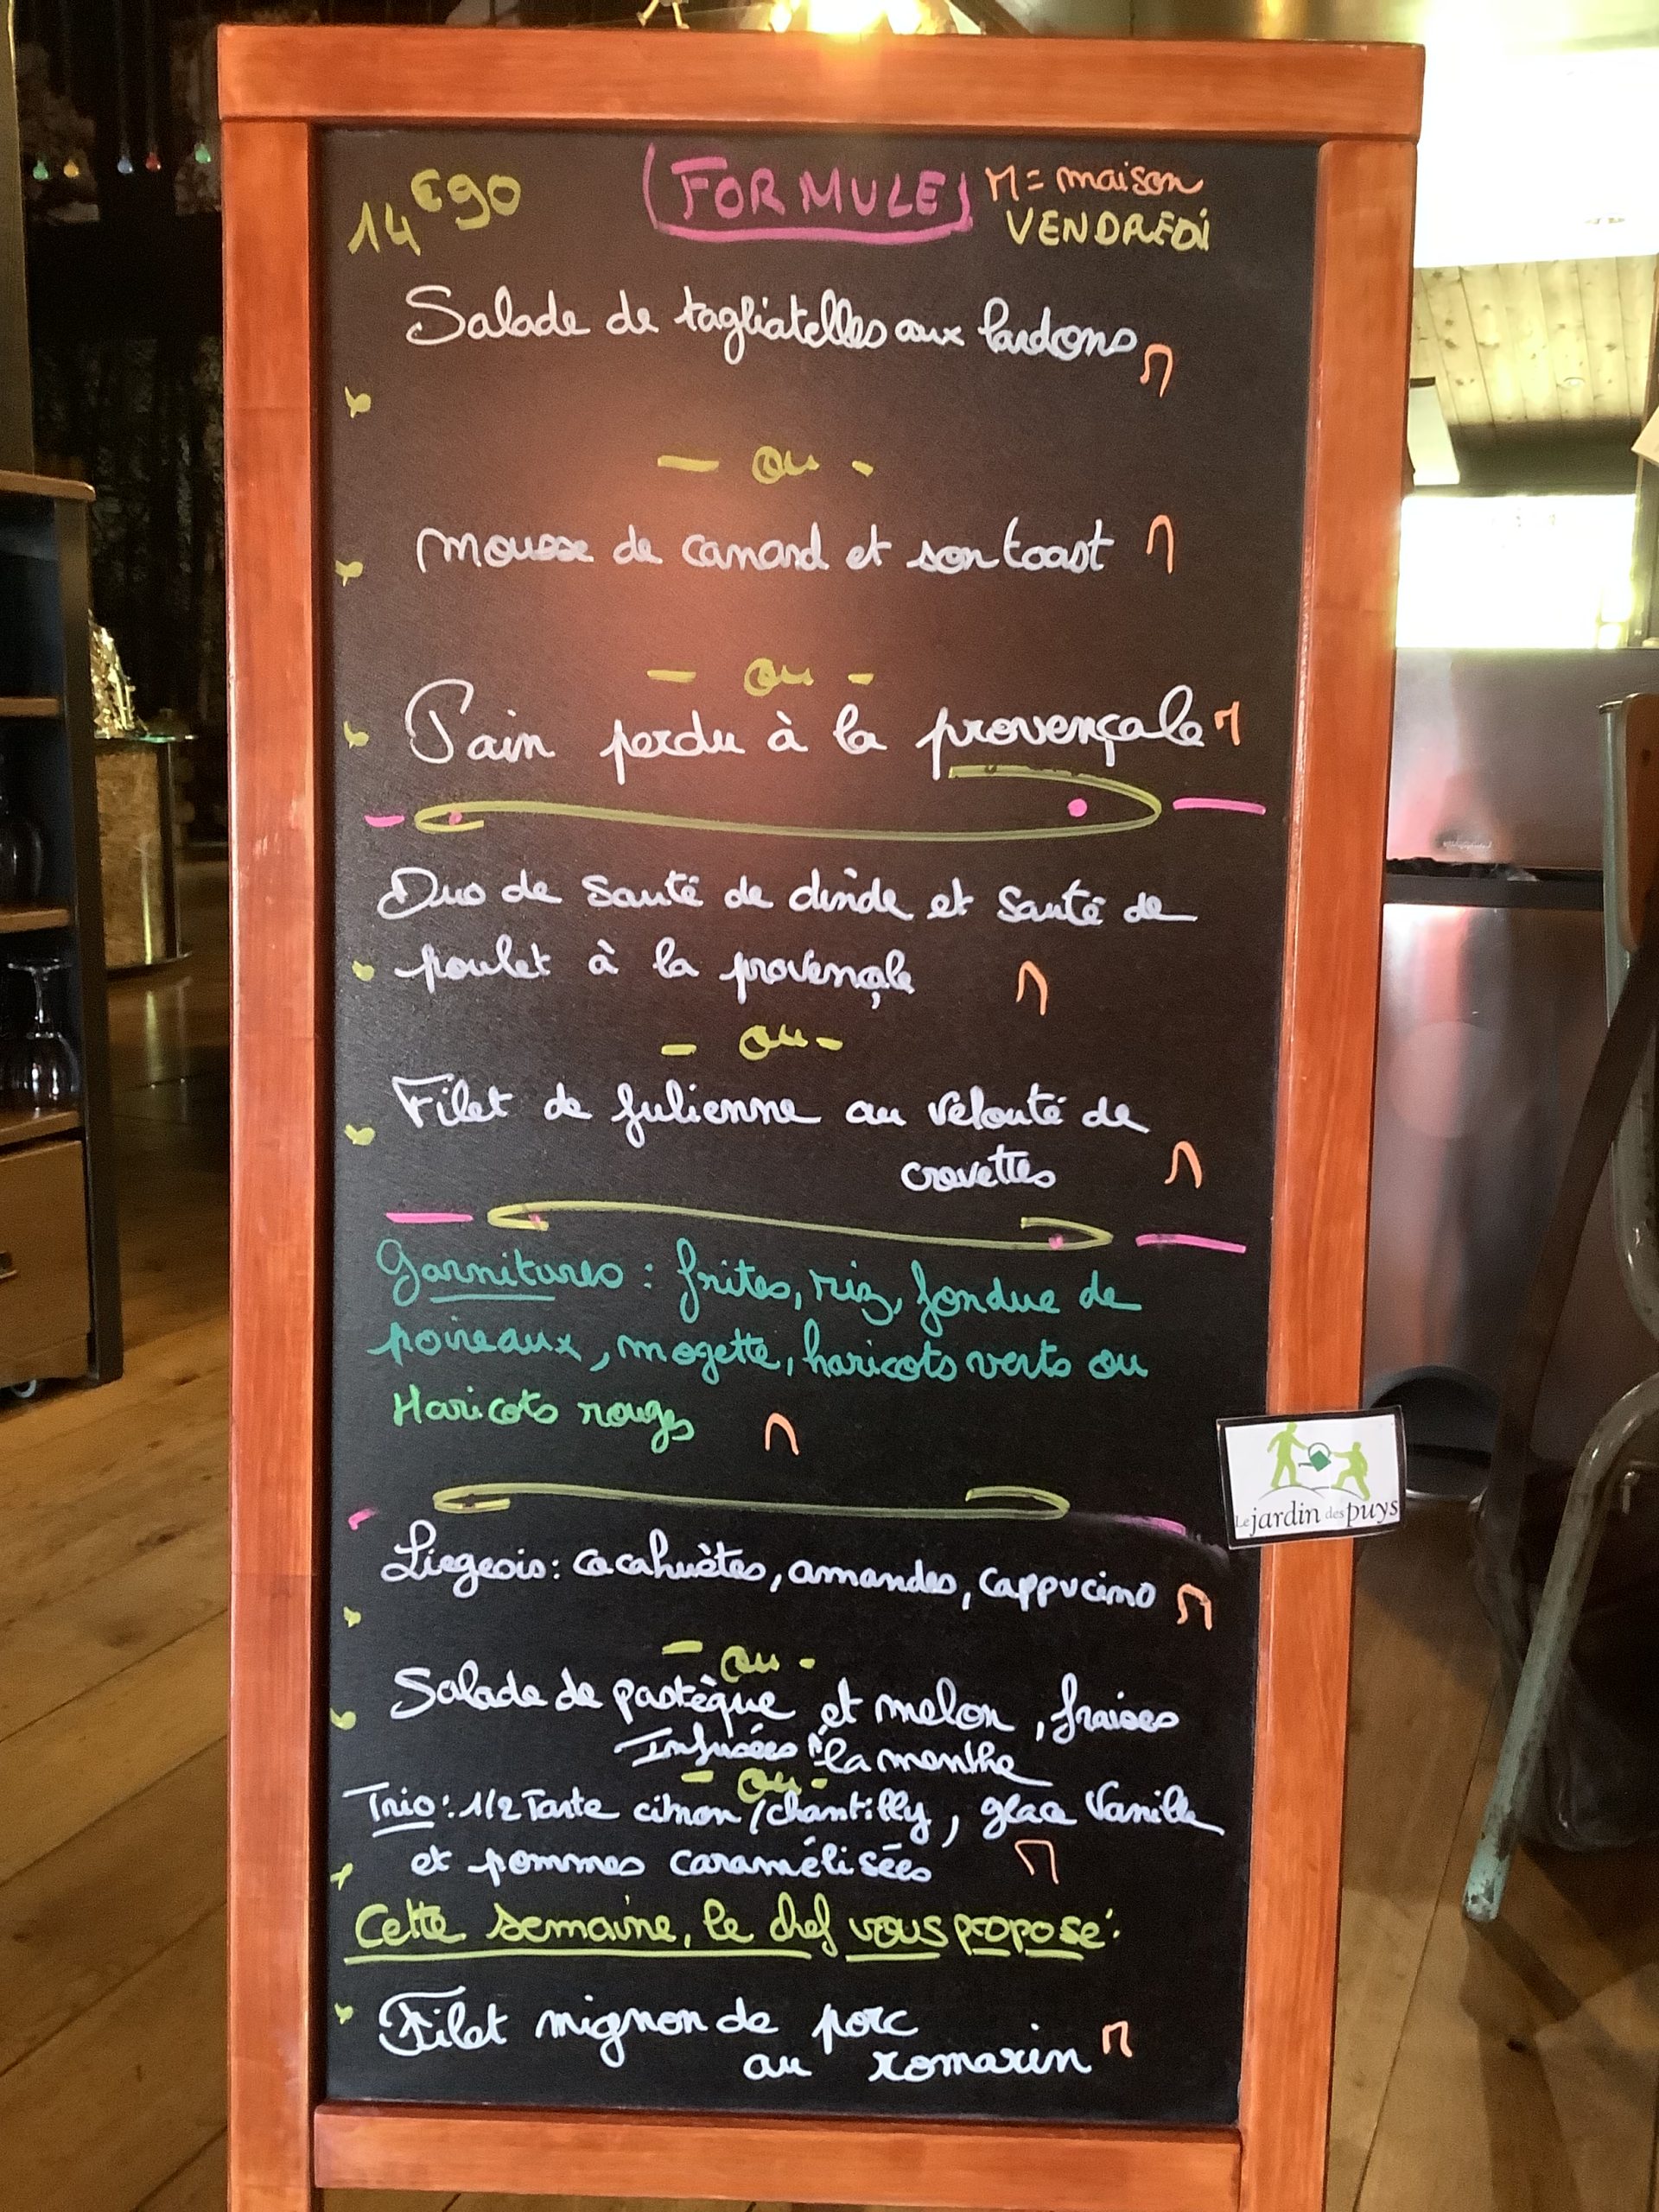 14€90 FORMULE M = maison
VENDREDI
Salade de tagliatelles aux lardons M
- ou -
mousse de canard et son toast M
- ou -
Pain perdu à la provençale M
Duo de Sauté de dinde et Sauté de
poulet à la provençale M
- ou -
Filet de Julienne au velouté de
crevettes M
Garnitures : frites, riz, fondue de
poireaux, mogette, haricots verts ou
Haricots rouges M
Liegeois : cacahuètes, amandes, cappucino M
- ou -
Salade de pastèque et melon, fraises
Infusées à la menthe
- ou -
Trio : 1/2 Tarte citron/chantilly, glace Vanille
et pommes caramélisées M
Cette semaine, le chef vous propose :
Filet mignon de porc
au romarin M
Le jardin des puys